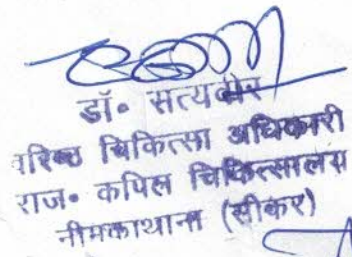 डॉ॰ सत्यवीर
वरिष्ठ चिकित्सा अधिकारी
राज॰ कपिल चिकित्सालय
नीमकाथाना (सीकर)